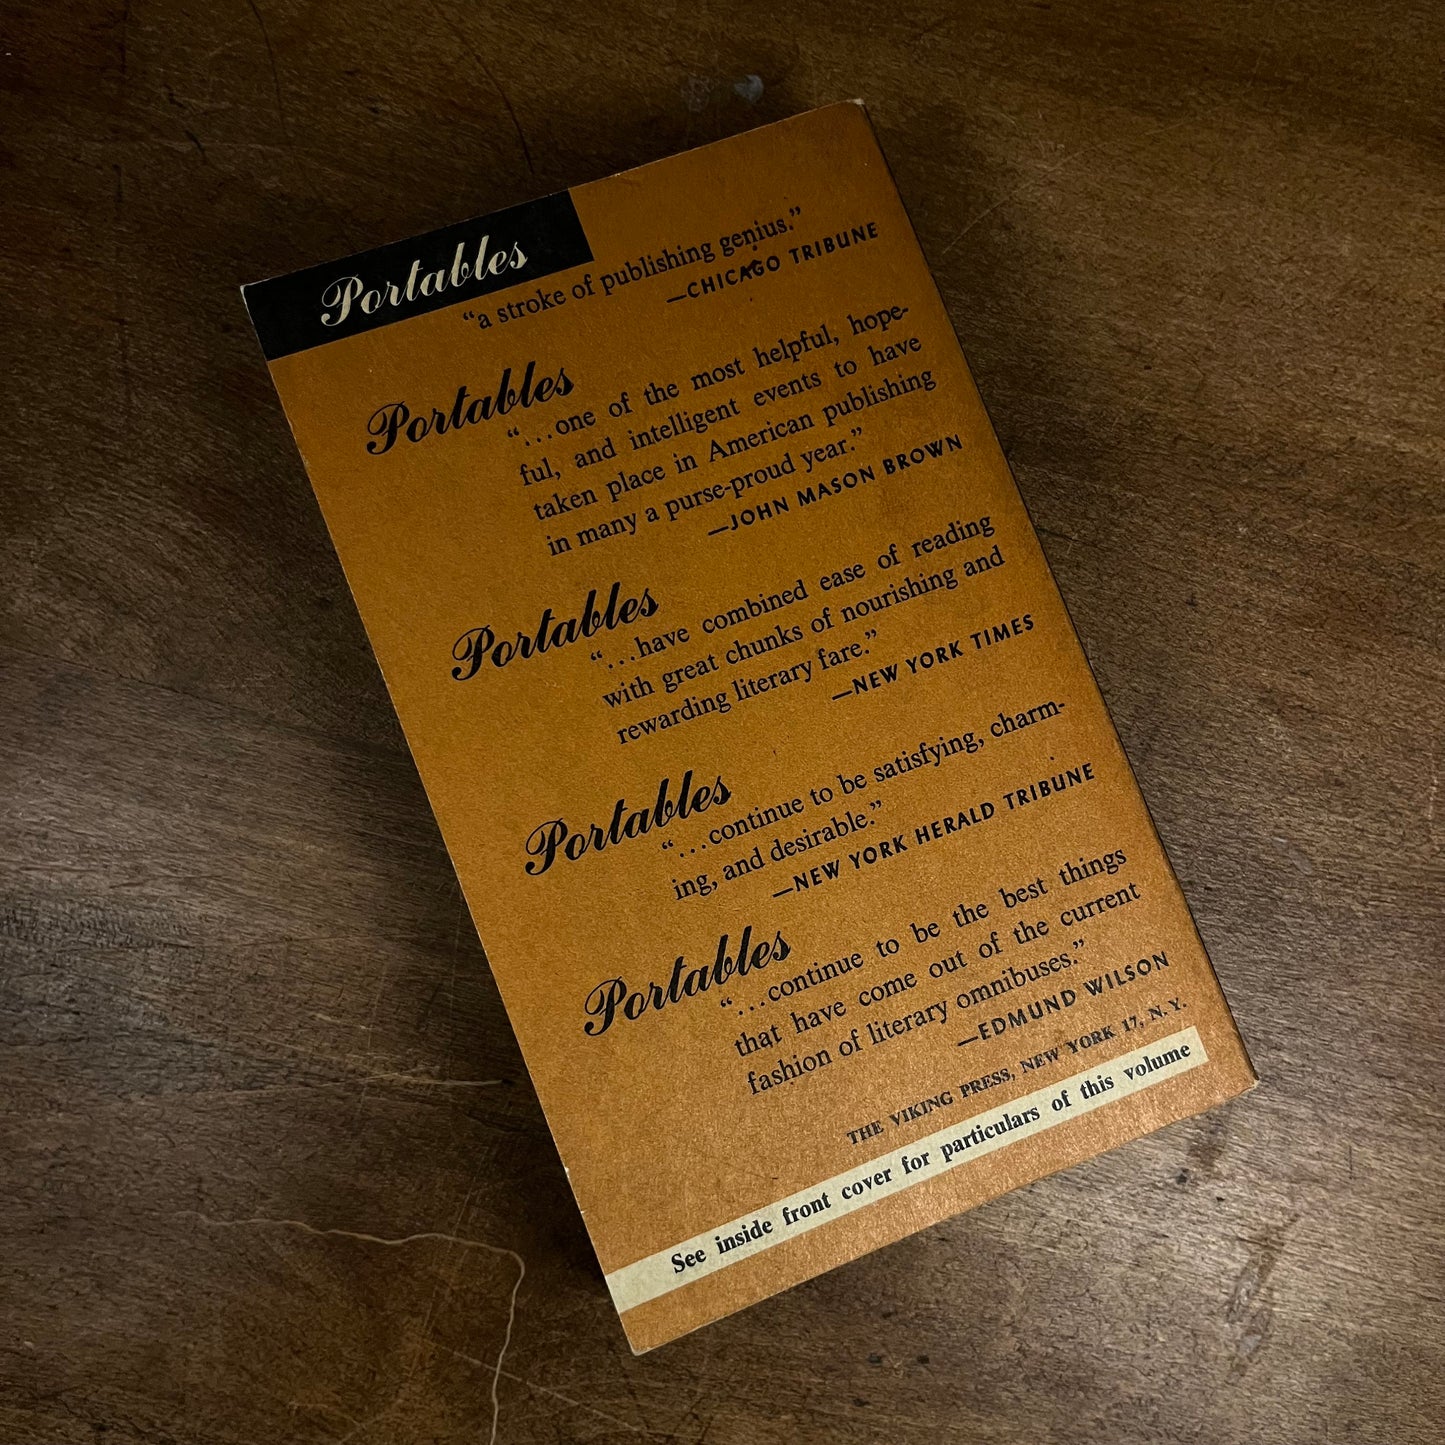 Portables
“a stroke of publishing genius.”
—CHICAGO TRIBUNE
Portables
“...one of the most helpful, hope-
ful, and intelligent events to have
taken place in American publishing
in many a purse-proud year.”
—JOHN MASON BROWN
Portables
“...have combined ease of reading
with great chunks of nourishing and
rewarding literary fare.”
—NEW YORK TIMES
Portables
“...continue to be satisfying, charm-
ing, and desirable.”
—NEW YORK HERALD TRIBUNE
Portables
“...continue to be the best things
that have come out of the current
fashion of literary omnibuses.”
—EDMUND WILSON
THE VIKING PRESS, NEW YORK 17, N. Y.
See inside front cover for particulars of this volume